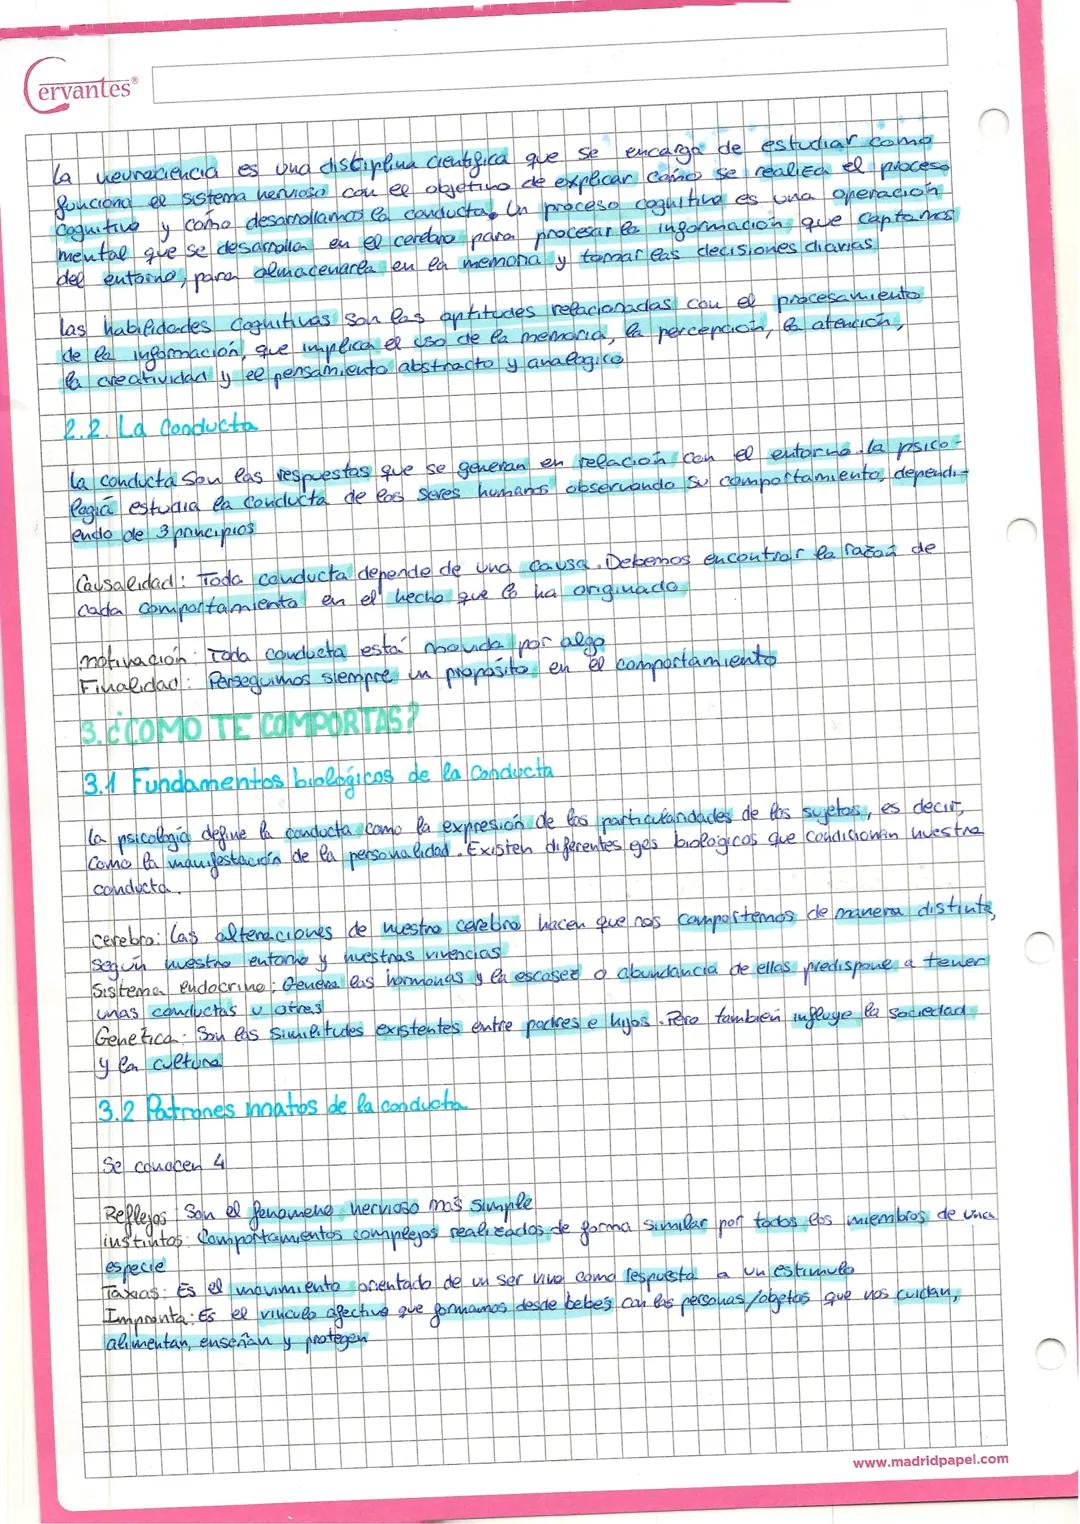 Cervantes®
La neurociencia es una disciplina cientifica que se encarga de estudiar como
funciona el sistema nervioso con el objetivo de explicar cómo se realiza el proceso
cognitivo y cómo desarrollamos la conducta. Un proceso cognitivo es una operación
mental que se desarrolla en el cerebro para procesar la información que captamos
del entorno, para almacenarla en la memoria y tomar las decisiones diarias
Las habilidades cognitivas son las aptitudes relacionadas con el procesamiento
de la información, que implica el uso de la memoria, la percepción, la atención,
la creatividad y el pensamiento abstracto y analogico
2.2. La Conducta
La conducta Son las respuestas que se generan en relación con el entorno. la psico-
logiá estudia la conducta de los seres humans observando su comportamiento, dependi-
endo de 3 principios
Causalidad: Toda conducta depende de una causa. Debemos encontrar la razón de
cada comportamiento en el hecho que lo ha originado
motivación: Toda conducta está movida por algo
Finalidad: Perseguimos siempre un proposito en el comportamiento
3. ¿COMO TE COMPORTAS?
3.1 Fundamentos biológicos de la Conducta
La psicología define la conducta como la expresión de las particularidades de los sujetos, es decir,
como la manifestación de la personalidad. Existen diferentes ges biológicos que condicionan nuestra
conducta.
cerebro: Las alteraciones de nuestro cerebro hacen que nos comportemos de manera distinta,
según nuestro entorno y nuestras vivencias
Sistema endocrino: Genera las hormonas y la escasez o abundancia de ellas predispone a tener
unas conductas u otras
Genetica: Son las similitudes existentes entre padres e hijos. Pero también influye la sociedad
y la cultura
3.2 Patrones innatos de la conducta
Se conocen 4
Reflejos Son el fenomeno nervioso más simple
instintos: Comportamientos complejos realizados de forma similar por todos los miembros de una
especie
Taxias: Es el movimiento orientado de un ser vivo como respuesta a un estimulo
Impronta: Es el vinculo afectivo que formamos desde bebés con las personas/objetos que nos cuidan,
alimentan, enseñan y protegen
www.madridpapel.com